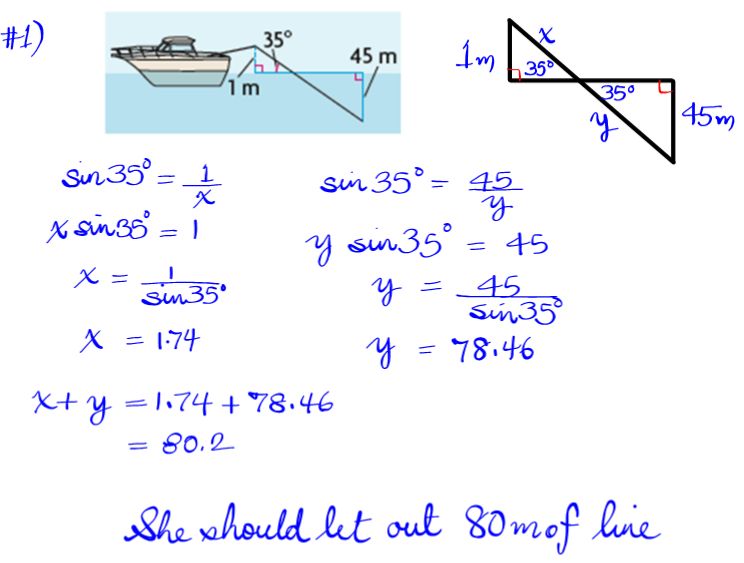 #1)
35°
45 m
1 m
x
1m
35°
35°
y
45m
sin35° = 1/x
x sin35° = 1
x = 1/sin35°
x = 1.74
sin35° = 45/y
y sin35° = 45
y = 45/sin35°
y = 78.46
x + y = 1.74 + 78.46
= 80.2
She should let out 80m of line